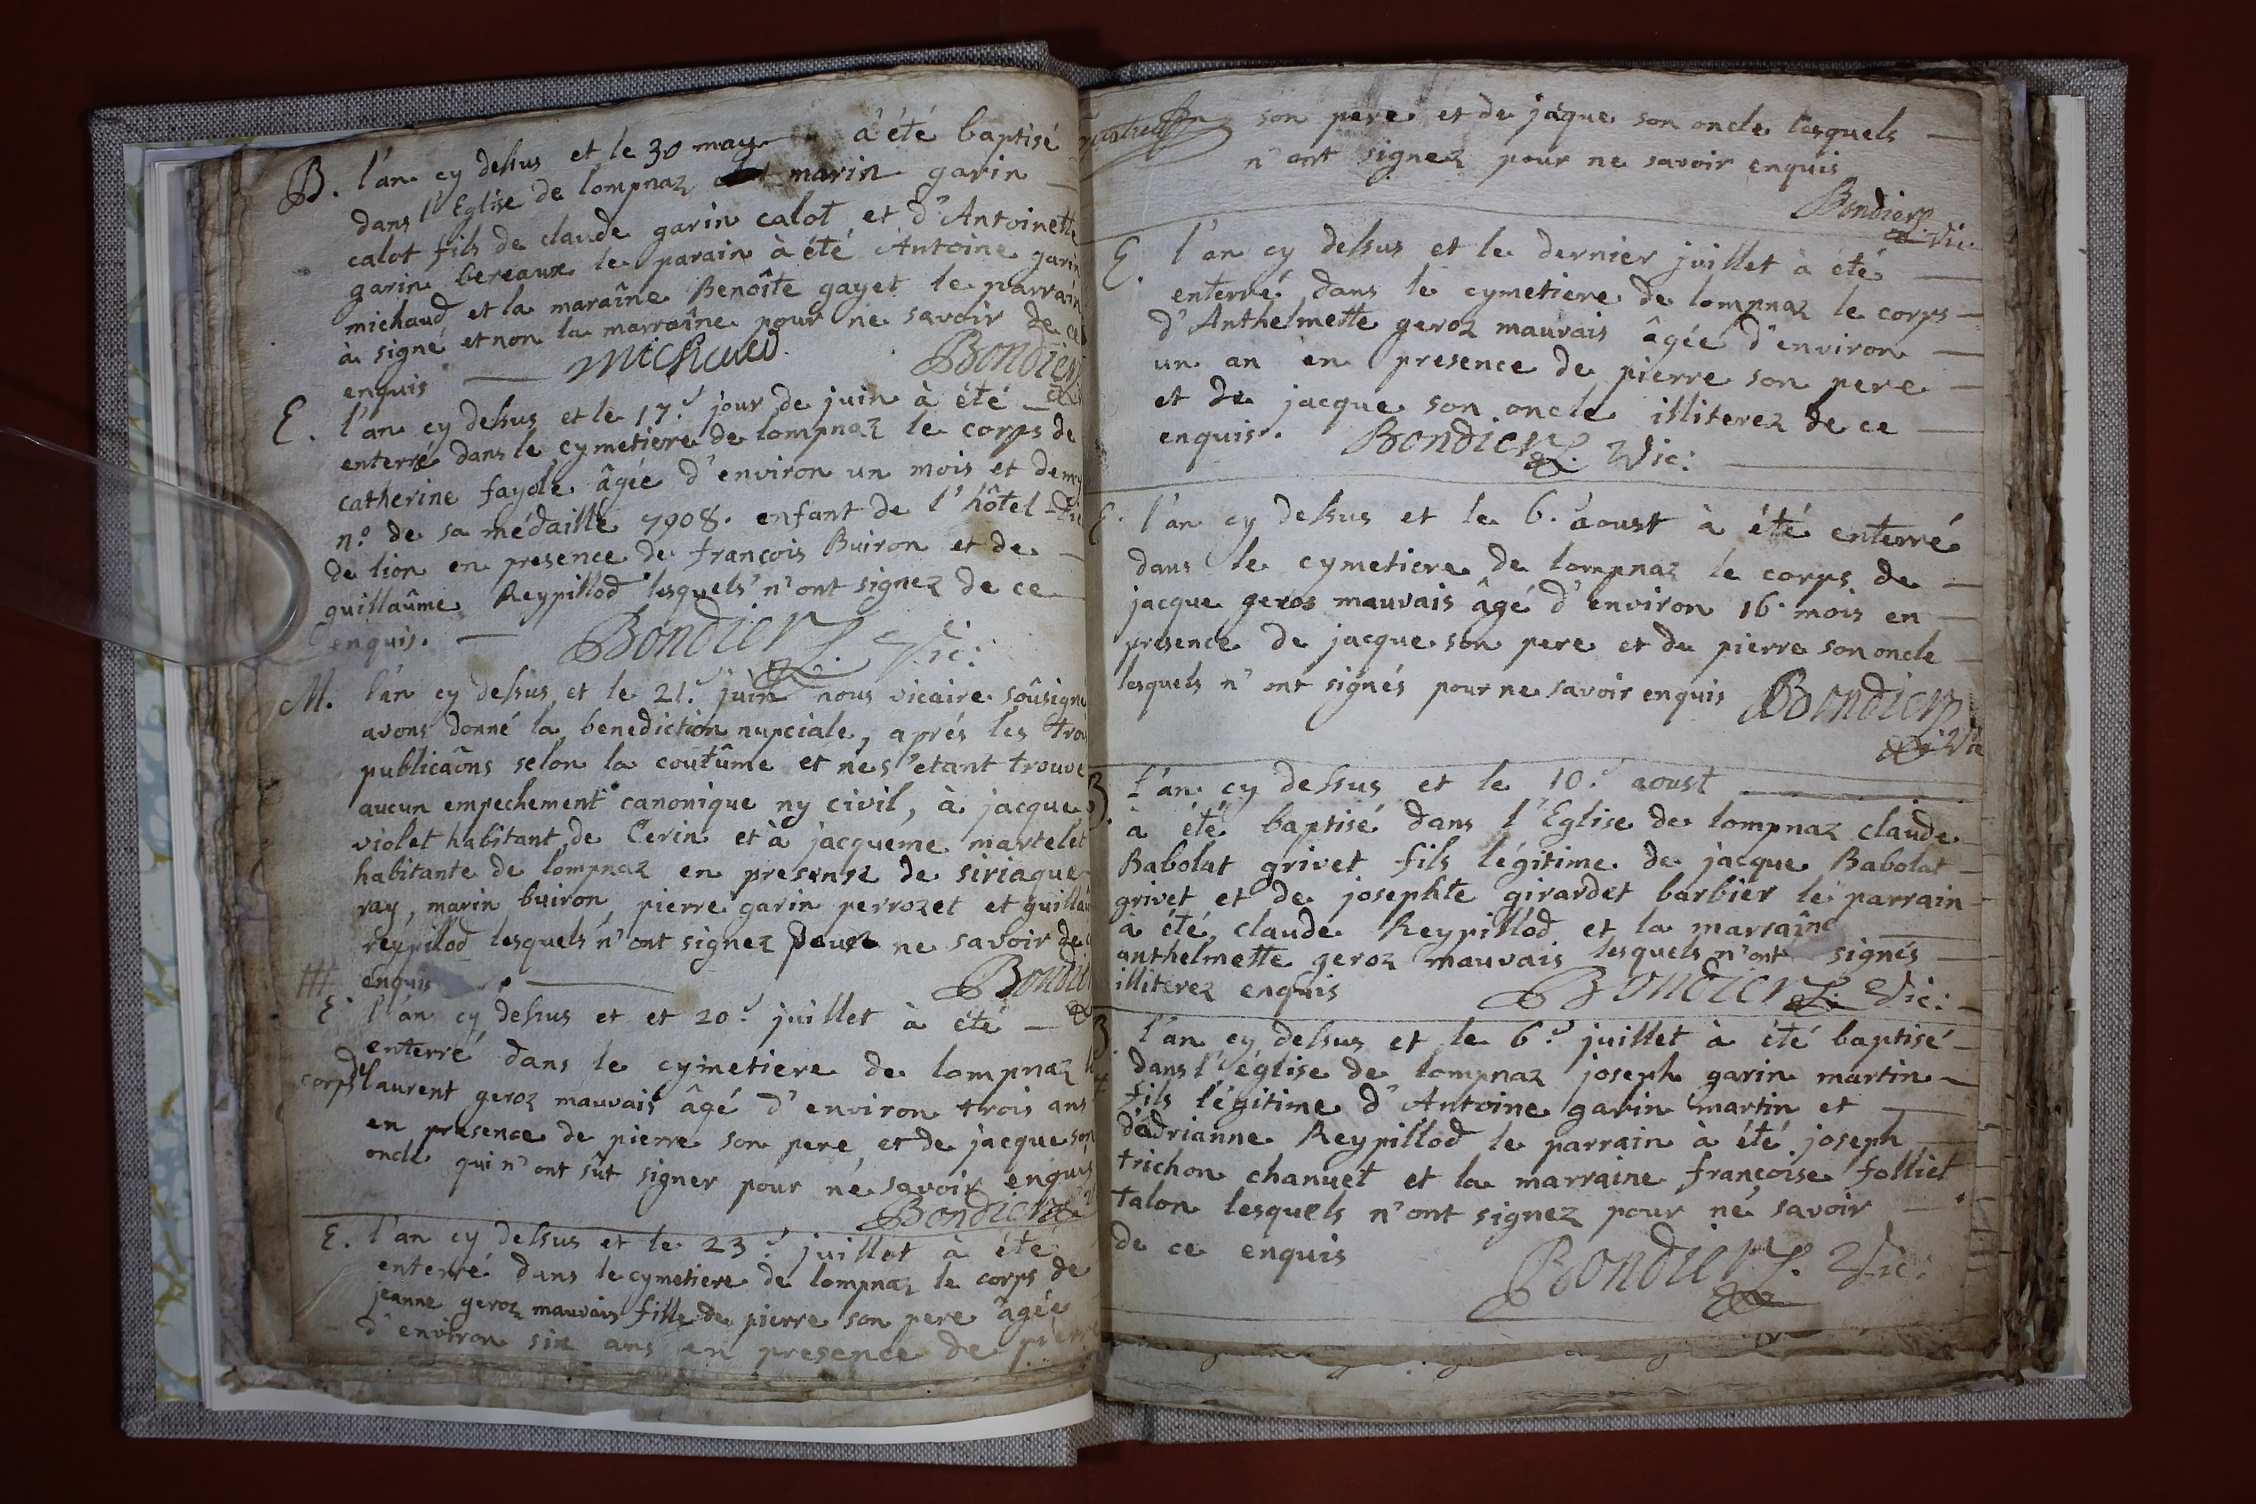 B. l'an cy dessus et le 30 may à été baptisé
dans l'Eglise de lompnaz marin garin
calot fils de claude garin calot et d'Antoinette
garin bereaux le parain à été Antoine garin
michaud et la maraîne Benoîte gayet le parrain
à signé et non la marraîne pour ne savoir de ce
enquis michaud Bondier
E. l'an cy dessus et le 17.e jour de juin à été
enterré dans le cymetiere de lompnaz le corps de
catherine fayole âgée d'environ un mois et demy
n.o de sa médaille 7908. enfant de l'hôtel-Die
de lion en presence de françois Buiron et de
guillaûme Reypillod lesquels n'ont signez de ce
enquis. Bondier Vic:
M. l'an cy dessus et le 21.e juin nous vicaire soûsigné
avons donné la benediction nupciale, aprés les troi
publicaôns selon la coutûme et ne s'etant trouvé
aucun empechement canonique ny civil, à jacque
violet habitant de Cerin et à jacqueme martelet
habitante de lompnaz en presense de siriaque
ray, marin buiron pierre garin perrozet et guillau
reypilod lesquels n'ont signez pour ne savoir de c
enquis Bondie
E. l'an cy dessus et et 20.e juillet à été
enterré dans le cymetiere de lompnaz le
corps d laurent geroz mauvais âgé d'environ trois ans
en presence de pierre son pere, et de jacque son
oncle qui n'ont sût signer pour ne savoir enquis
Bondier
E. l'an cy dessus et le 23.e juillet à été
enterré dans le cymetiere de lompnaz le corps de
jeanne geroz mauvais fille de pierre son pere âgée
d'environ six ans en presence de pierre
son pere et de jâque son oncle lesquels
n'ont signez pour ne savoir enquis
Bondier Vic.
E. l'an cy dessus et le dernier juillet à été
enterré dans le cymetiere de lompnaz le corps
d'Anthelmette geroz mauvais âgée d'environ
un an en presence de pierre son pere
et de jacque son oncle illiterez de ce
enquis. Bondier Vic:
E. l'an cy dessus et le 6.e aoust à été enterré
dans le cymetiere de lompnaz le corps de
jacque geros mauvais âgé d'environ 16. mois en
presence de jacque son pere et de pierre son oncle
lesquels n'ont signés pour ne savoir enquis Bondier
Vic
B. l'an cy dessus et le 10.e aoust
à été baptisé dans l'Eglise de lompnaz claude
Babolat grivet fils légitime de jacque Babolat
grivet et de josephte girardet barbier le parrain
à été claude Reypillod et la marraîne
anthelmette geroz mauvais lesquels n'ont signés
illiterez enquis Bondier Vic:
B. l'an cy dessus et le 6.e juillet à été baptisé
dans l'église de lompnaz joseph garin martin
fils légitime d'Antoine garin martin et
d'adrianne Reypillod le parrain à été joseph
trichon chanuet et la marraine françoise folliet
talon lesquels n'ont signez pour ne savoir
de ce enquis Bondier Vic: